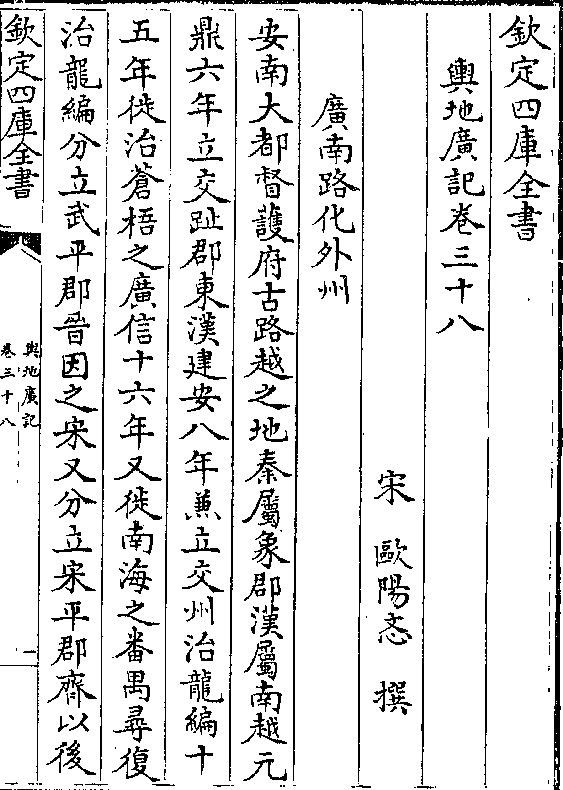 欽定四庫全書
輿地廣記卷三十八
宋 歐陽忞 撰
廣南路化外州
安南大都督護府古路越之地秦屬象郡漢屬南越元
鼎六年立交趾郡東漢建安八年兼立交州治龍編十
五年徙治蒼梧之廣信十六年又徙南海之番禺尋復
治龍編分立武平郡晉因之宋又分立宋平郡齊以後
欽定四庫全書
輿地廣記
卷三十八
一